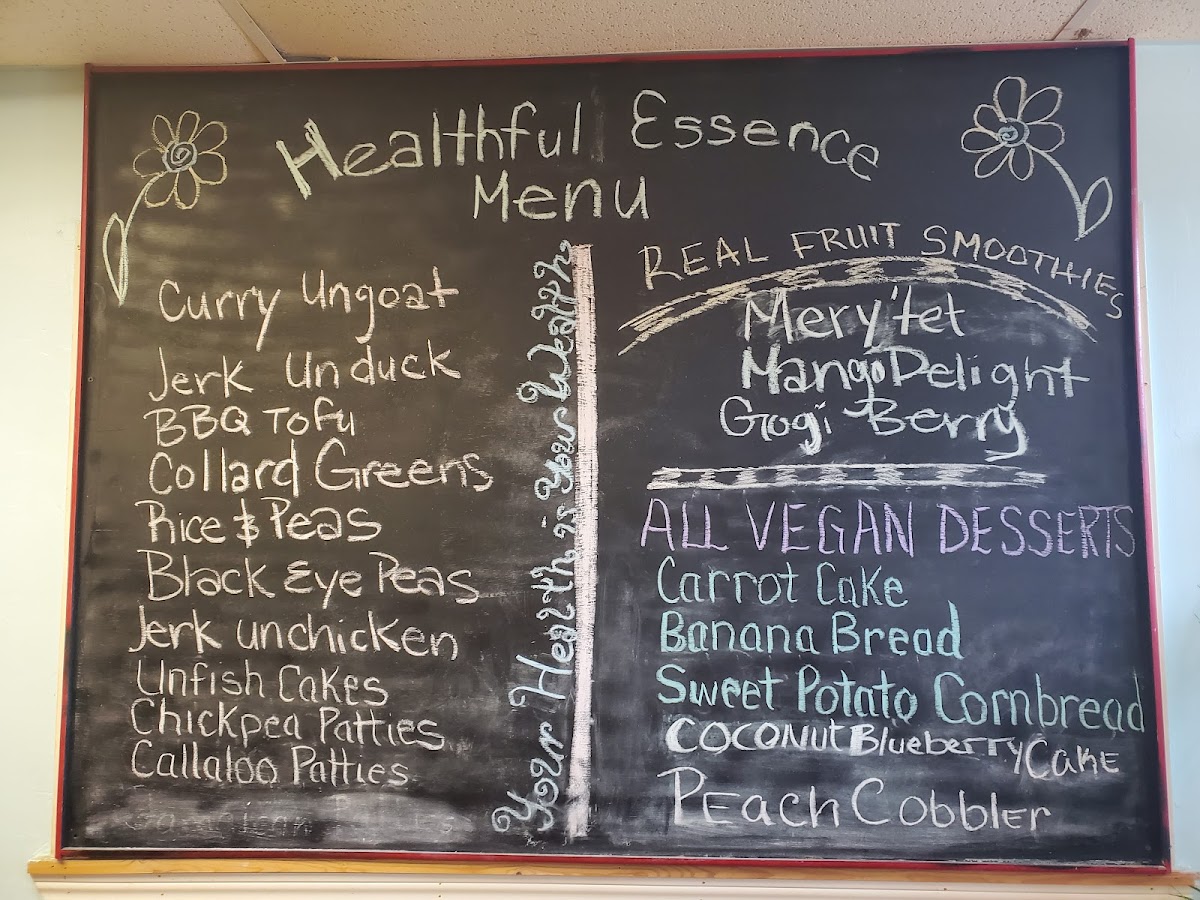 Healthful Essence
Menu
Curry Ungoat
Jerk Unduck
BBQ Tofu
Collard Greens
Rice & Peas
Black Eye Peas
Jerk unchicken
Unfish Cakes
Chickpea Patties
Callaloo Patties
Your Health is Your Wealth
REAL FRUIT SMOOTHIES
Mery'tet
Mango Delight
Gogi Berry
ALL VEGAN DESSERTS
Carrot Cake
Banana Bread
Sweet Potato Cornbread
COCONUT Blueberry Cake
PEach Cobbler